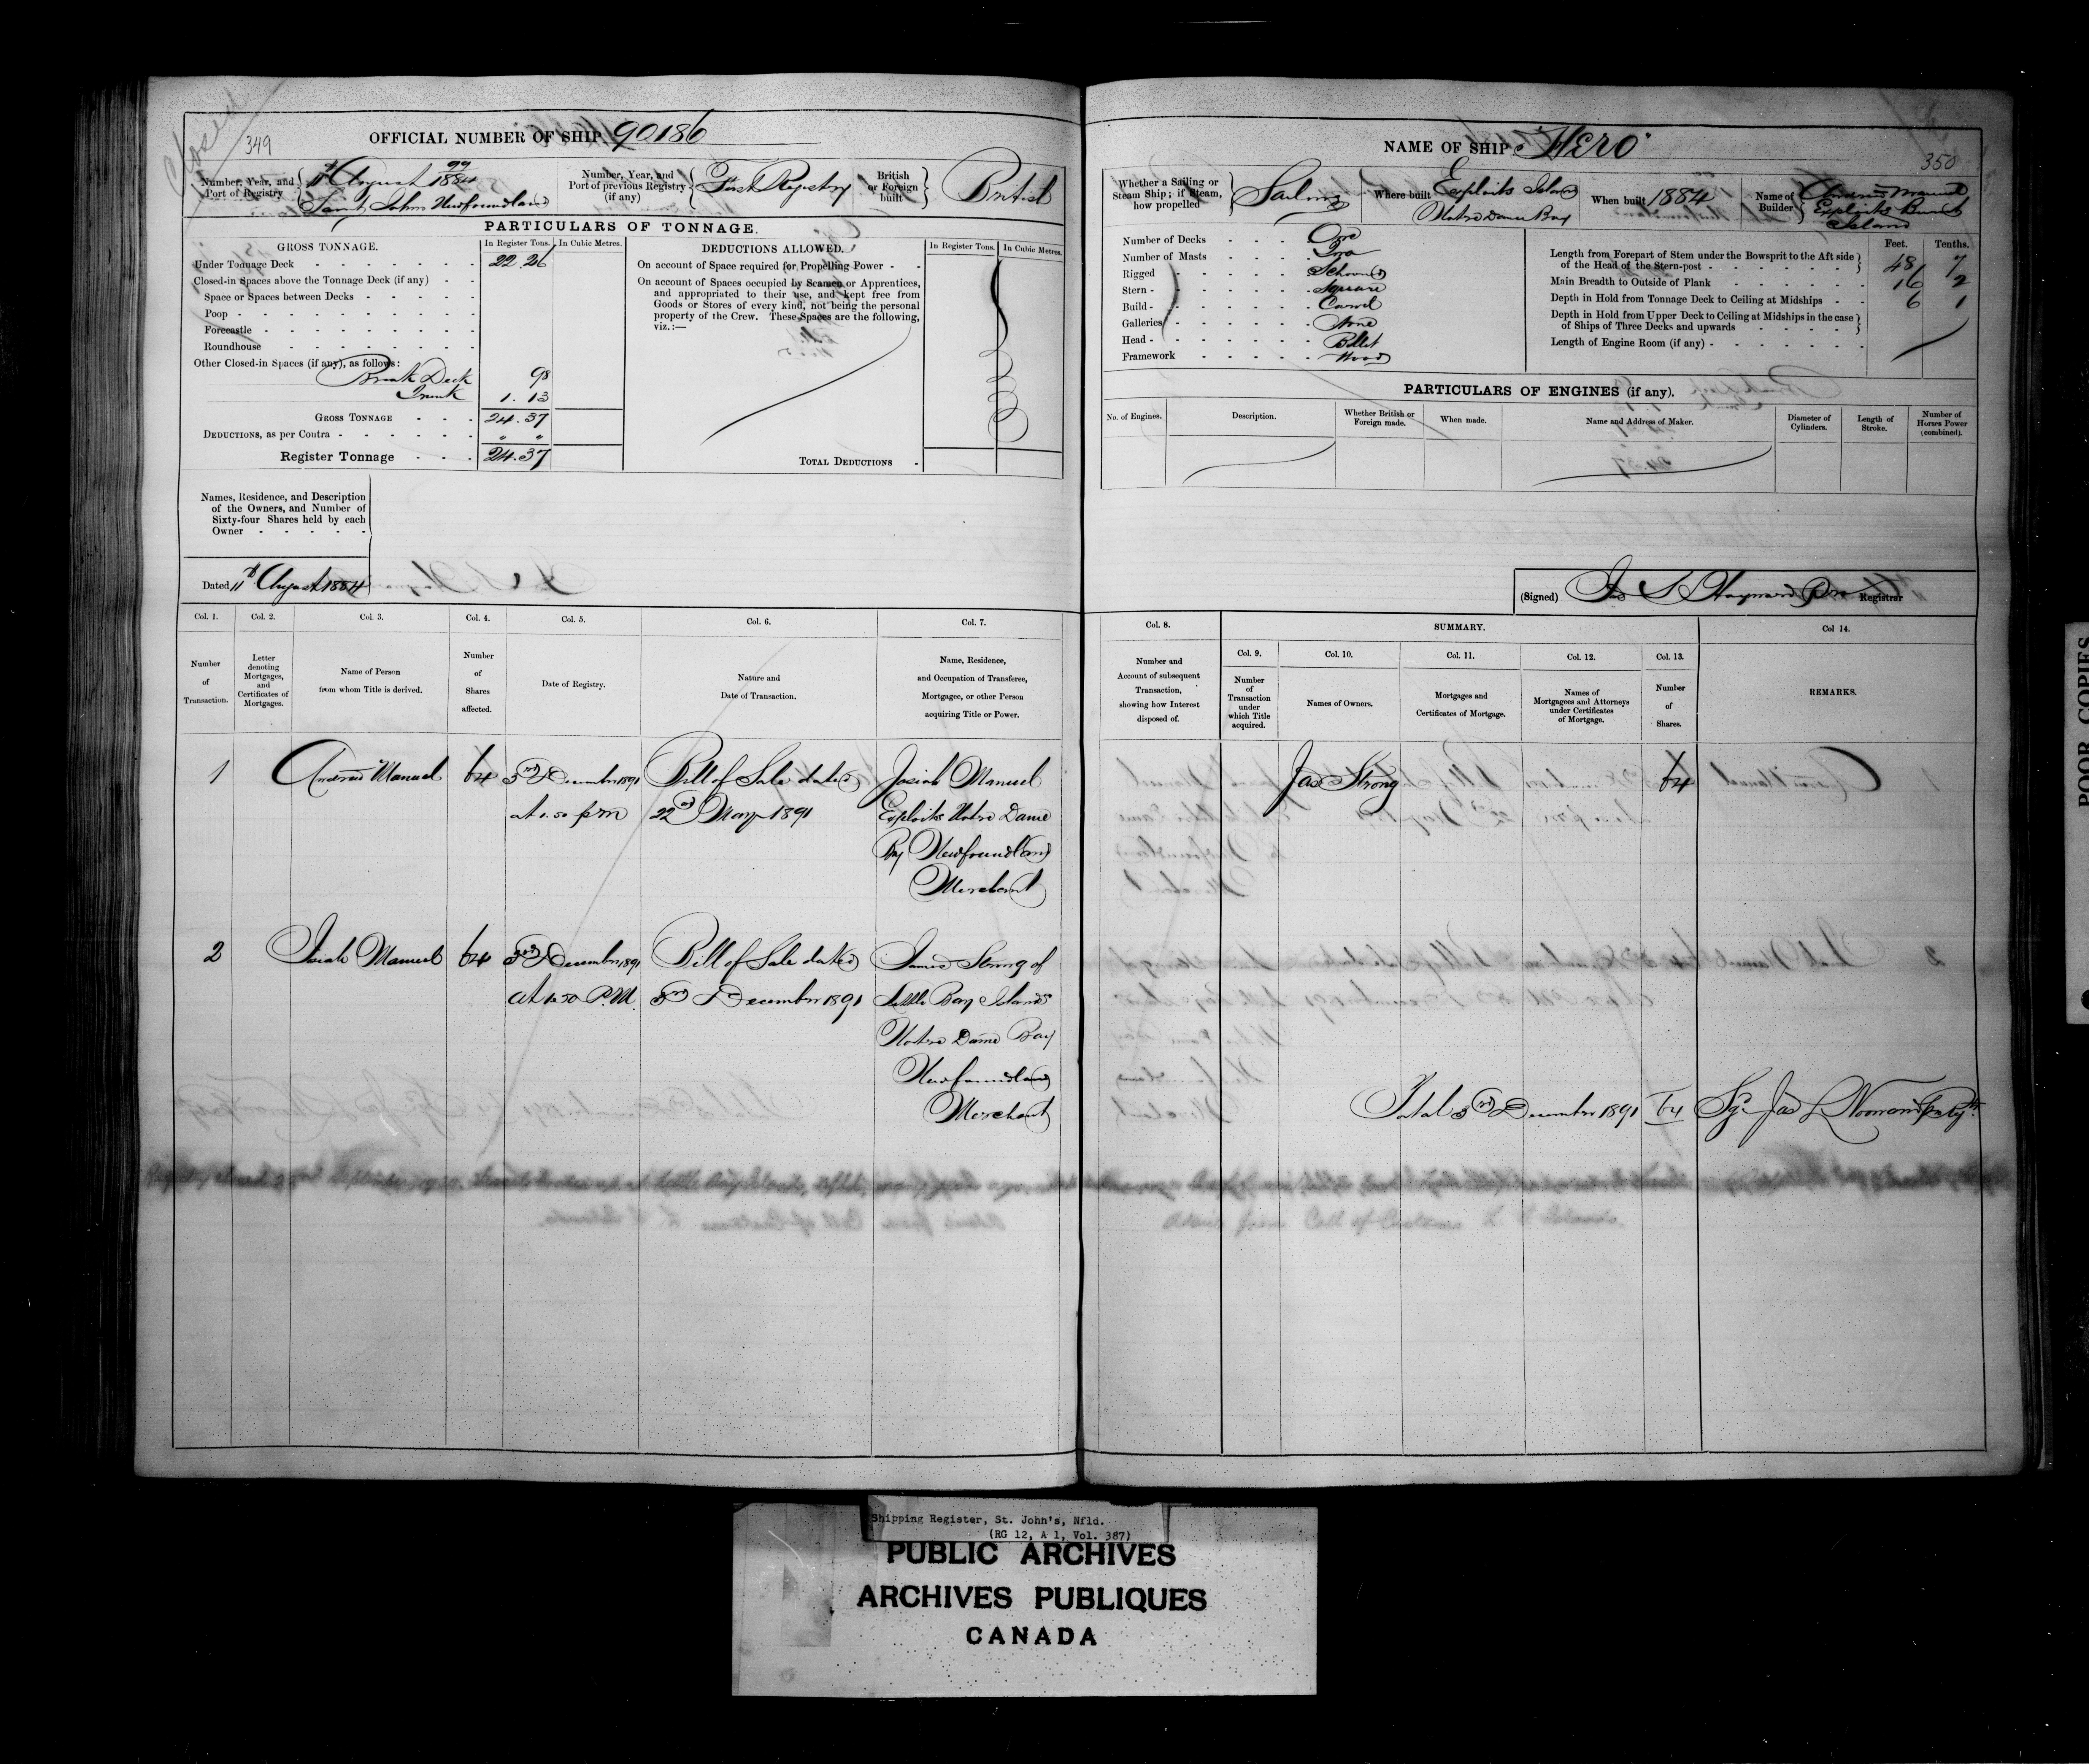 Closed
349
OFFICIAL NUMBER OF SHIP 90186
Number, Year, and Port of Registry
99
11th August 1884
Saint Johns Newfoundland
Number, Year, and Port of previous Registry (if any)
First Registry
British or Foreign built
British
PARTICULARS OF TONNAGE.
GROSS TONNAGE. In Register Tons. In Cubic Metres.
Under Tonnage Deck 22.26
Closed-in Spaces above the Tonnage Deck (if any)
Space or Spaces between Decks
Poop
Forecastle
Roundhouse
Other Closed-in Spaces (if any), as follows:
Break Deck 98
Trunk 1.13
GROSS TONNAGE 24.37
DEDUCTIONS, as per Contra " "
Register Tonnage 24.37
DEDUCTIONS ALLOWED. In Register Tons. In Cubic Metres.
On account of Space required for Propelling Power
On account of Spaces occupied by Seamen or Apprentices,
and appropriated to their use, and kept free from
Goods or Stores of every kind, not being the personal
property of the Crew. These Spaces are the following,
viz.:—
TOTAL DEDUCTIONS
Names, Residence, and Description
of the Owners, and Number of
Sixty-four Shares held by each
Owner
Dated 11th August 1884
Col. 1. Col. 2. Col. 3. Col. 4. Col. 5. Col. 6. Col. 7.
Number of Transaction.
Letter denoting Mortgages, and Certificates of Mortgages.
Name of Person from whom Title is derived.
Number of Shares affected.
Date of Registry.
Nature and Date of Transaction.
Name, Residence, and Occupation of Transferee, Mortgagee, or other Person acquiring Title or Power.
1 Andrew Manuel 64 3rd December 1891 Bill of Sale dated Josiah Manuel
at 1.50 pm 22nd May 1891 Exploits Notre Dame
Bay Newfoundland
Merchant
2 Josiah Manuel 64 3rd December 1891 Bill of Sale dated James Strong of
at 1.50 P.M. 3rd December 1891 Little Bay Islands
Notre Dame Bay
Newfoundland
Merchant
NAME OF SHIP "Hero"
350
Whether a Sailing or Steam Ship; if Steam, how propelled
Sailing
Where built
Exploits Island
Notre Dame Bay
When built 1884
Name of Builder
Andrew Manuel
Exploits Burnt
Island
Number of Decks One
Number of Masts Two
Rigged Schooner
Stern Square
Build Carvel
Galleries None
Head Billet
Framework Wood
Feet. Tenths.
Length from Forepart of Stem under the Bowsprit to the Aft side
of the Head of the Stern-post 48 7
Main Breadth to Outside of Plank 16 2
Depth in Hold from Tonnage Deck to Ceiling at Midships 6 1
Depth in Hold from Upper Deck to Ceiling at Midships in the case
of Ships of Three Decks and upwards
Length of Engine Room (if any)
PARTICULARS OF ENGINES (if any).
No. of Engines. Description. Whether British or Foreign made. When made. Name and Address of Maker. Diameter of Cylinders. Length of Stroke. Number of Horses Power (combined).
(Signed) Jas S Hayward Pro Registrar
Col. 8. SUMMARY. Col 14.
Col. 9. Col. 10. Col. 11. Col. 12. Col. 13.
Number and Account of subsequent Transaction, showing how Interest disposed of.
Number of Transaction under which Title acquired.
Names of Owners.
Mortgages and Certificates of Mortgage.
Names of Mortgagees and Attorneys under Certificates of Mortgage.
Number of Shares.
REMARKS.
Jas Strong 64
Total 3rd December 1891 64 Sgd Jas L Noonan
Registry closed September
Advice from Coll of Customs L. B. Islands.
POOR COPIES
Shipping Register, St. John's, Nfld.
(RG 12, A 1, Vol. 387)
PUBLIC ARCHIVES
ARCHIVES PUBLIQUES
CANADA